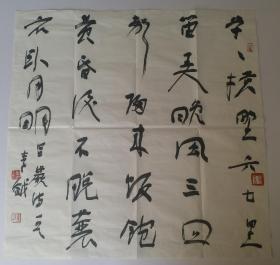 草横野六七里
笛弄晚风三四
声归来饭饱
黄昏后不脱蓑
衣卧月明吕岩诗
李铎